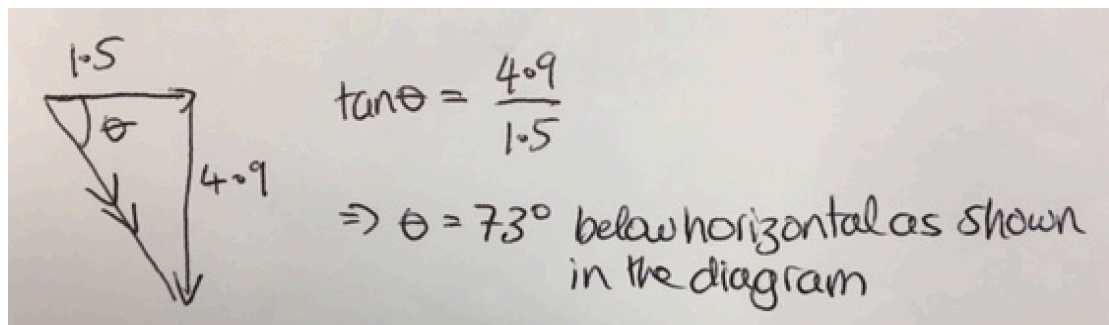 1.5
θ
4.9
tanθ = 4.9/1.5
⇒ θ = 73° below horizontal as shown
in the diagram